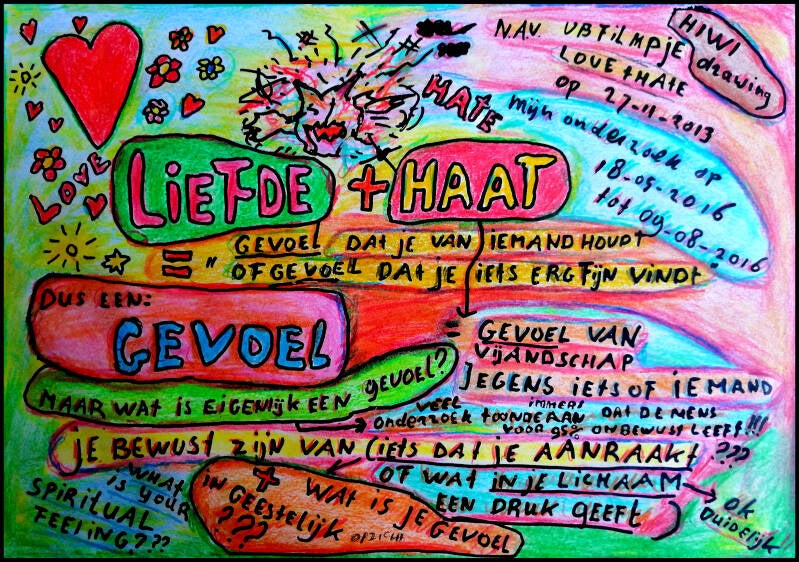 HIWI
drawing
N.A.V. UBFILMPJE
LOVE + HATE
OP 27-11-2013
mijn onderzoek op
18-05-2016
tot 09-08-2016
HATE
LOVE
LIEFDE + HAAT
= " GEVOEL DAT JE VAN IEMAND HOUDT
OF GEVOEL DAT JE IETS ERG FIJN VINDT.
DUS EEN:
GEVOEL
= GEVOEL VAN
VIJANDSCHAP
JEGENS IETS OF IEMAND
MAAR WAT IS EIGENLIJK EEN GEVOEL?
VEEL IMMERS
onderzoek toonde AAN DAT DE MENS
VOOR 95% ONBEWUST LEEFT!!!
JE BEWUST ZIJN VAN (IETS DAT JE AANRAAKT ???
OF WAT IN JE LICHAAM
EEN DRUK GEEFT)
OK
DUIDELIJK!!
+ WAT IS JE GEVOEL
IN GEESTELIJK OPZICHT
???
WHAT
IS YOUR
SPIRITUAL
FEELING???